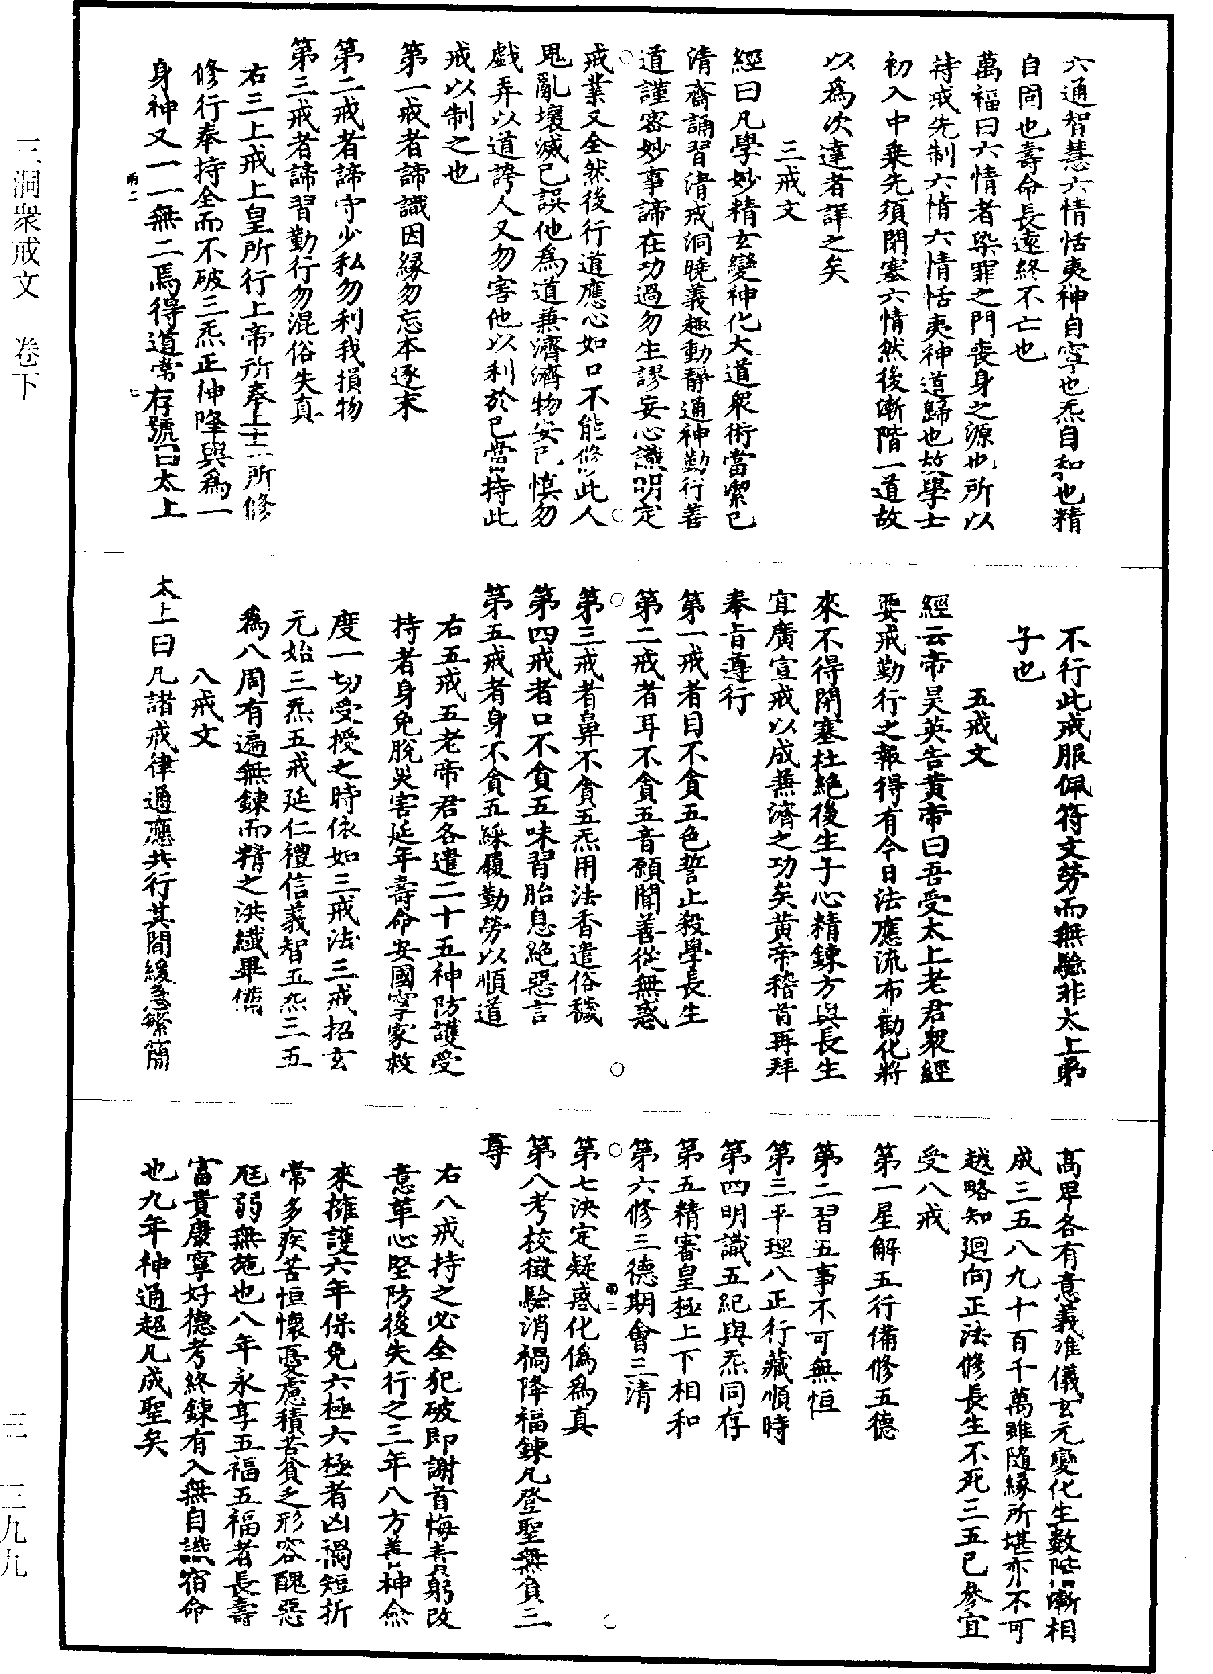 三洞衆戒文　卷下
六通智慧六情恬夷神自寧也炁自和也精
自固也壽命長遠終不亡也
萬福曰六情者染罪之門喪身之源也所以
持戒先制六情六情恬夷神道歸也故學士
初入中乗先須閉塞六情然後漸階一道故
以爲次達者詳之矣
三戒文
經曰凡學妙精玄變神化大道衆術當潔己
清齋誦習清戒洞曉義趣動靜通神勤行善
道謹密妙事諦在功過勿生謬妄心識明定
戒業又全然後行道應心如口不能修此人
鬼亂壞滅已誤他爲道兼濟濟物安已慎勿
戲弄以道誇人又勿害他以利於已當持此
戒以制之也
第一戒者諦識因緣勿忘本逐末
第二戒者諦守少私勿利我損物
第三戒者諦習勤行勿混俗失真
右三上戒上皇所行上帝所奉上士所修
修行奉持全而不破三炁正神降與爲一
身神又一一無二焉得道常存號曰太上
不行此戒服佩符文勞而無驗非太上弟
子也
五戒文
經云帝昊英告黄帝曰吾受太上老君衆經
要戒勤行之報得有今日法應流布勸化將
來不得閉塞杜絶後生子心精鍊方與長生
宜廣宣戒以成兼濟之功矣黄帝稽首再拜
奉旨遵行
第一戒者目不貪五色誓止殺學長生
第二戒者耳不貪五音願聞善從無惑
第三戒者鼻不貪五炁用法香遣俗穢
第四戒者口不貪五味習胎息絶惡言
第五戒者身不貪五綵履勤勞以順道
右五戒五老帝君各遣二十五神防護受
持者身免脫災害延年壽命安國寧家救
度一切受授之時依如三戒法三戒招玄
元始三炁五戒延仁禮信義智五炁三五
爲八周有遍無鍊而精之洪纖畢備
八戒文
太上曰凡諸戒律通應共行其間緩急繁簡
高卑各有意義准儀玄元變化生數階漸相
成三五八九十百千萬雖隨緣所堪亦不可
越略知廻向正法修長生不死三五已參宜
受八戒
第一星解五行備修五德
第二習五事不可無恒
第三平理八正行藏順時
第四明識五紀與炁同存
第五精審皇極上下相和
第六修三德期會三清
第七決定疑惑化僞爲真
第八考校徵驗消禍降福鍊凡登聖無負三
尊
右八戒持之必全犯破即謝首悔責躬改
意革心堅防後失行之三年八方善神僉
來擁護六年保免六極六極者凶禍短折
常多疾苦恒懷憂慮積苦貧乏形容醜惡
尫弱無施也八年永享五福五福者長壽
富貴康寧好德考終鍊有入無自識宿命
也九年神通超凡成聖矣
三　三九九